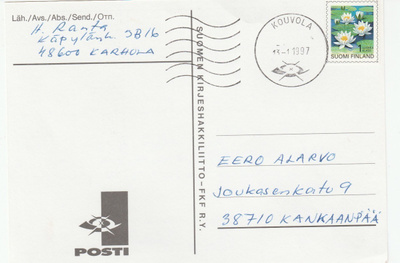 Läh./Avs./Abs./Send./Отп.
H. Ranta
3B16
48600 KARHULA
SUOMEN KIRJESHAKKILIITTO–FKF R.Y.
POSTI
KOUVOLA
-1 1997
1
SUOMI FINLAND
EERO ALARVO
Joukasenkatu 9
38710 KANKAANPÄÄ